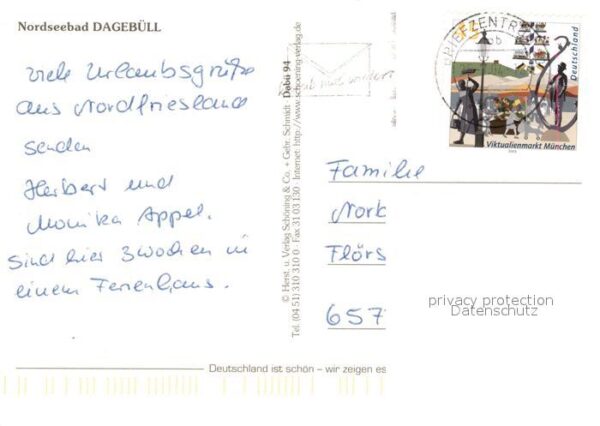 Nordseebad DAGEBÜLL
viele Urlaubsgrüße
aus Nordfriesland
senden
Herbert und
Monika Appel.
Sind hier 3 Wochen in
einem Ferienhaus.
© Herst. u. Verlag Schöning & Co. + Gebr. Schmidt · Dabü 94
Tel. (04 51) 310 310 0 · Fax 31 03 130 · Internet: http://www.schoening-verlag.de
BRIEFZENTRUM
Deutschland
Viktualienmarkt München
Familie
Nork
Flörs
657
privacy protection
Datenschutz
Deutschland ist schön – wir zeigen es